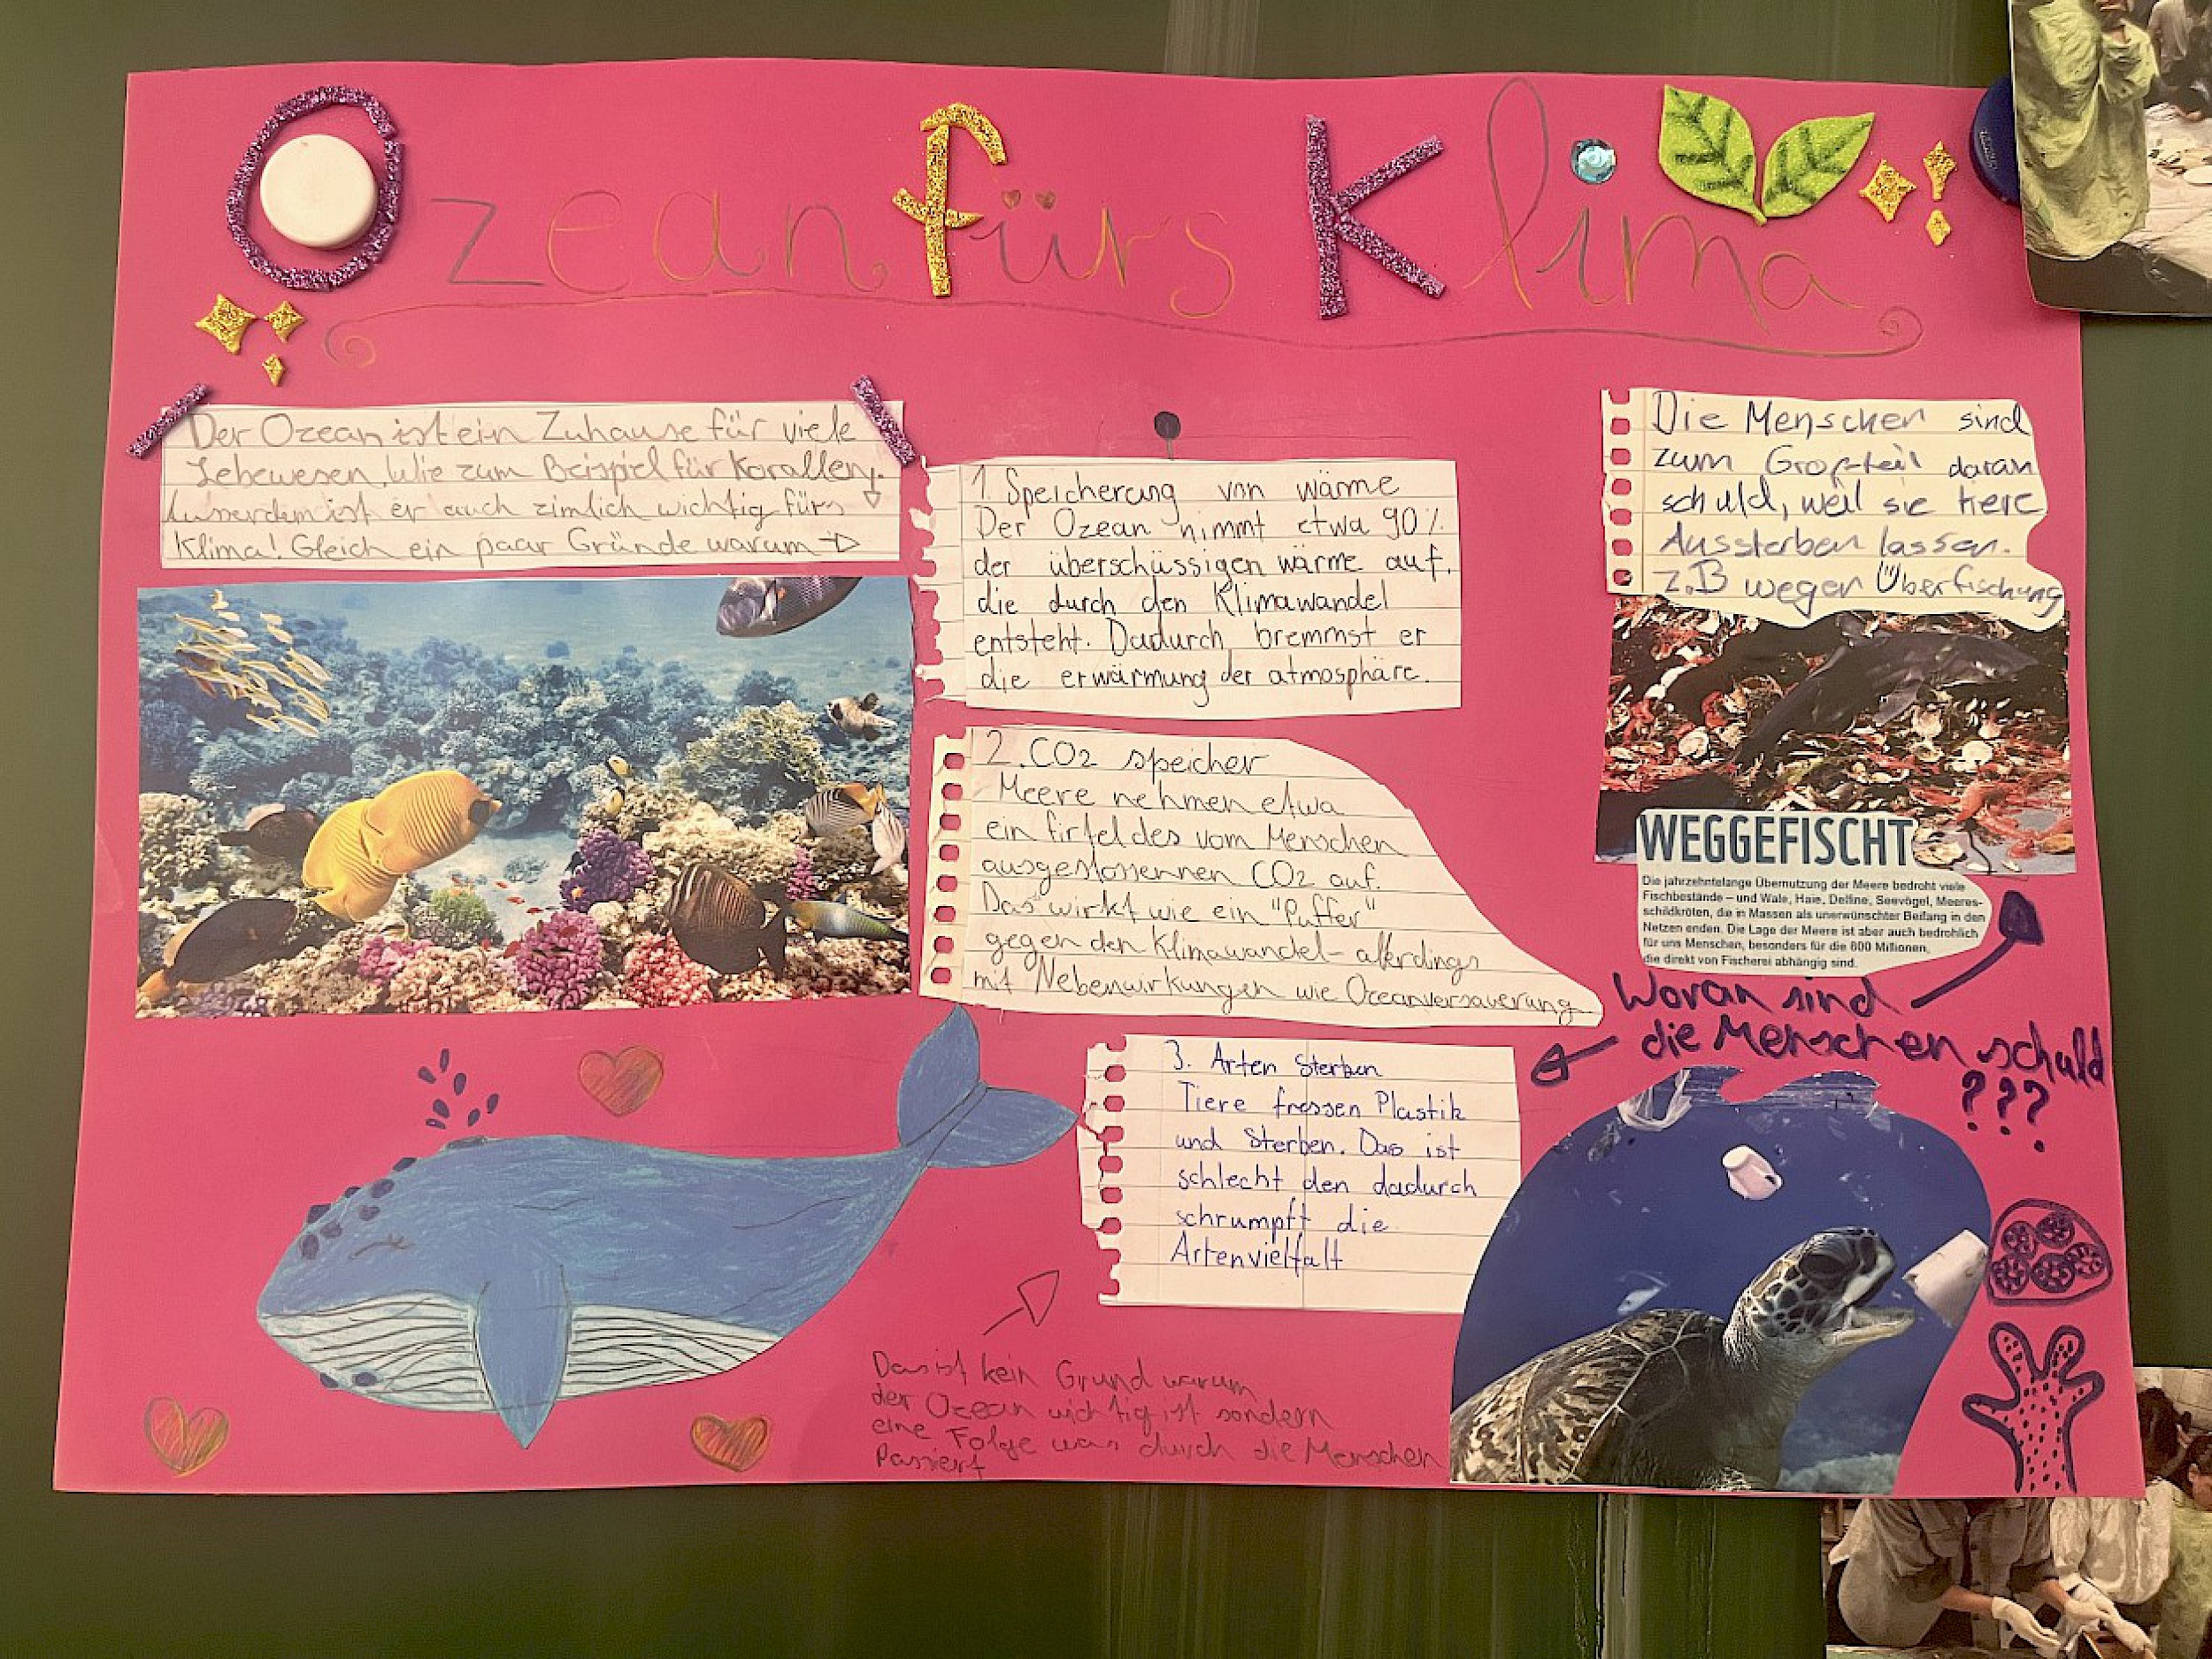 Ozean fürs Klima
Der Ozean ist ein Zuhause für viele
Lebewesen. Wie zum Beispiel für Korallen.
Ausserdem ist er auch zimlich wichtig fürs
Klima! Gleich ein paar Gründe warum
1. Speicherung von wärme
Der Ozean nimmt etwa 90%
der überschüssigen wärme auf.
die durch den Klimawandel
entsteht. Dadurch bremmst er
die erwärmung der atmosphäre.
2. CO2 speicher
Meere nehmen etwa
ein firtel des vom Menschen
ausgestossennen CO2 auf.
Das wirkt wie ein "Puffer"
gegen den Klimawandel - allerdings
mit Nebenwirkungen wie Oceanversauerung
3. Arten Sterben
Tiere fressen Plastik
und Sterben. Das ist
schlecht den dadurch
schrumpft die
Artenvielfalt
Das ist kein Grund warum
der Ozean wichtig ist sondern
eine Folge was durch die Menschen
Passiert
Die Menschen sind
zum Großteil daran
schuld, weil sie tiere
Aussterben lassen.
z.B wegen Überfischung
WEGGEFISCHT
Die jahrzehntelange Übernutzung der Meere bedroht viele
Fischbestände – und Wale, Haie, Delfine, Seevögel, Meeres-
schildkröten, die in Massen als unerwünschter Beifang in den
Netzen enden. Die Lage der Meere ist aber auch bedrohlich
für uns Menschen, besonders für die 600 Millionen,
die direkt von Fischerei abhängig sind.
Woran sind
die Menschen schuld
???